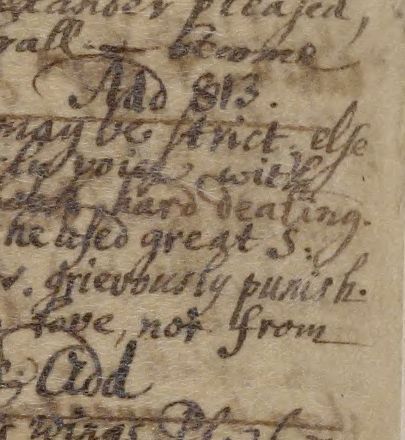 pleased,
rall become
Add 813.
may be strict. else
void with
hard dealing.
he used great S.
grievously punish.
love, not from
Add
wings